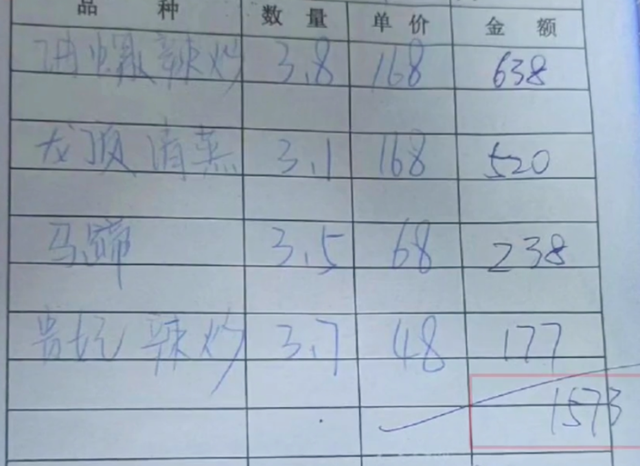 品 种 数 量 单 价 金 额
辣炒 3.8 168 638
龙须 清蒸 3.1 168 520
马蹄 3.5 68 238
贵妃 辣炒 3.7 48 177
1573